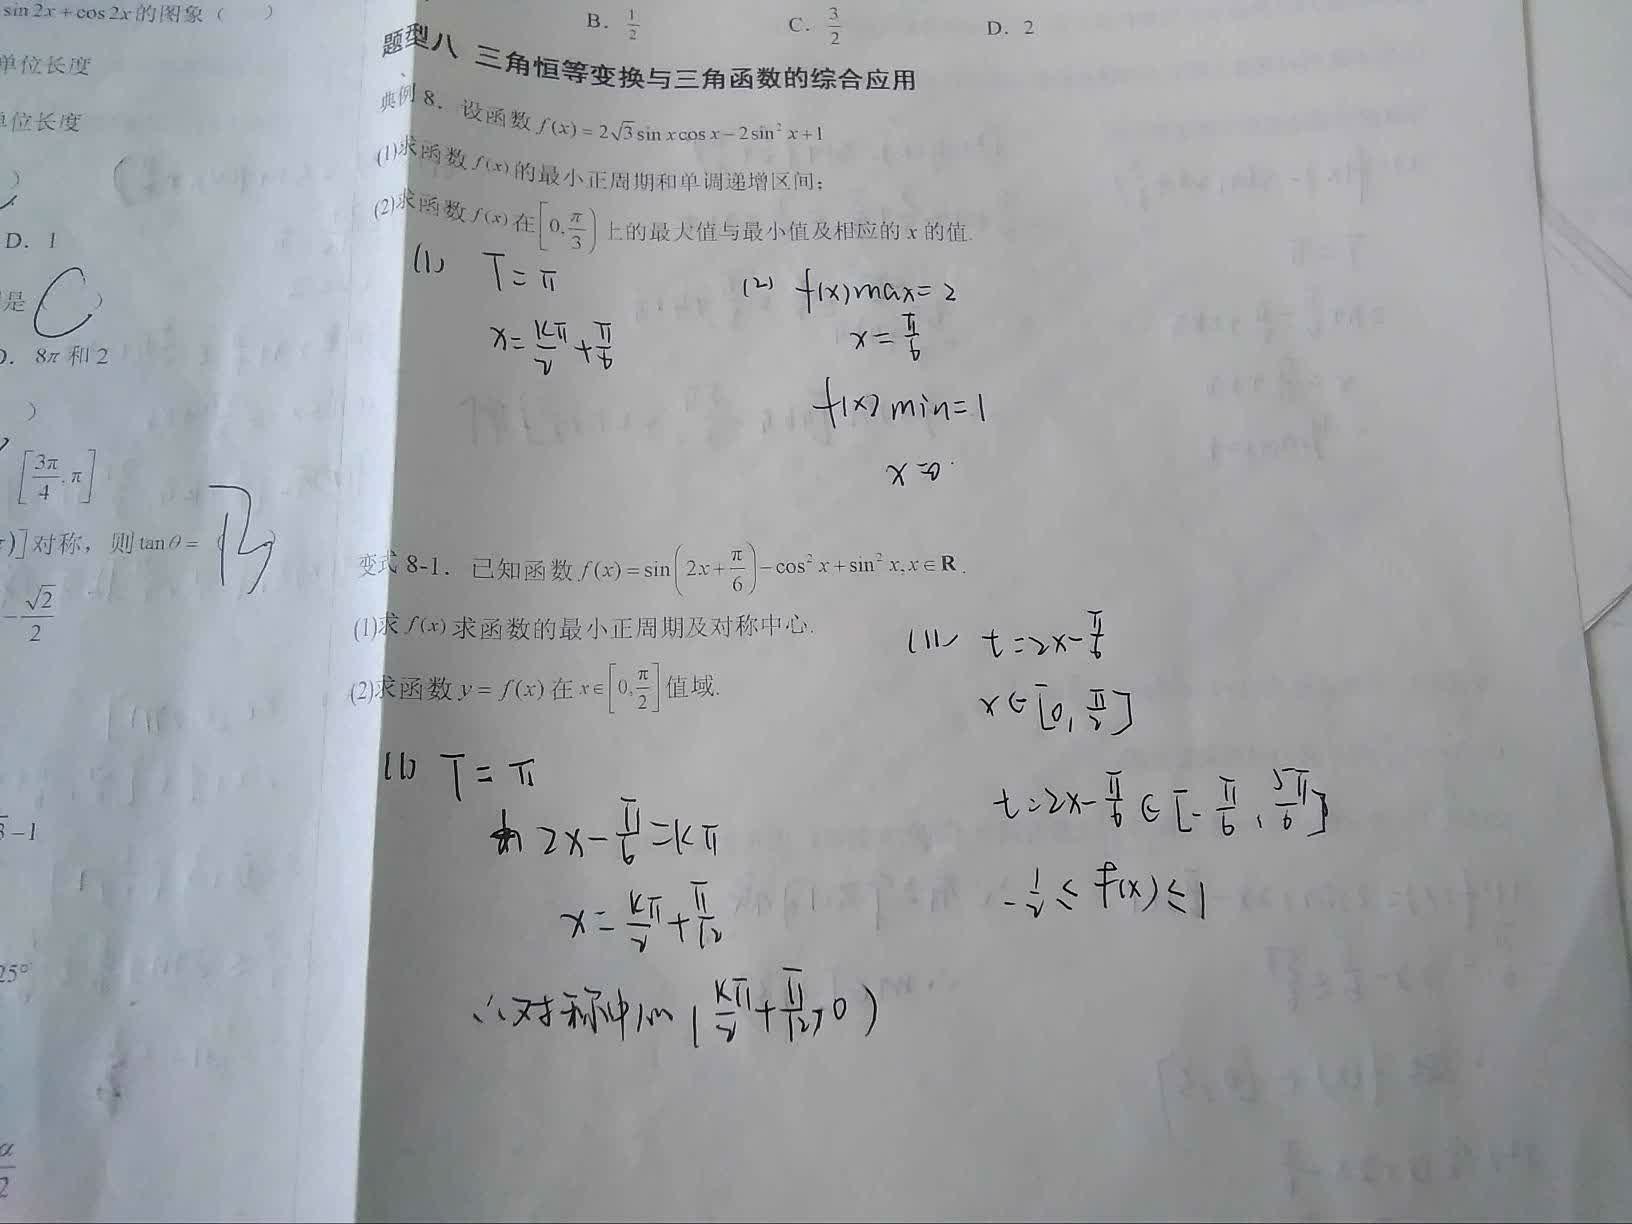 sin2x+cos2x的图象（　　）
单位长度
单位长度
）
D．1
是 C ）
D．8π和2
）
[3π/4,π]
)]对称，则tanθ=（ B ）
-√2/2
-1
25°
α/2
B．1/2　C．3/2　D．2
题型八 三角恒等变换与三角函数的综合应用
典例8．设函数f(x)=2√3sin x cos x-2sin² x+1
(1)求函数f(x)的最小正周期和单调递增区间；
(2)求函数f(x)在[0,π/3)上的最大值与最小值及相应的x的值.
(1) T=π
x=kπ/2+π/6
(2) f(x)max=2
x=π/6
f(x)min=1
x=0.
变式8-1．已知函数f(x)=sin(2x+π/6)-cos² x+sin² x,x∈R.
(1)求f(x)求函数的最小正周期及对称中心.
(2)求函数y=f(x)在x∈[0,π/2]值域.
(1) T=π
2x-π/6=kπ
x=kπ/2+π/12
∴对称中心(kπ/2+π/12,0)
(11) t=2x-π/6
x∈[0,π/2]
t=2x-π/6∈[-π/6,5π/6]
-1/2≤f(x)≤1